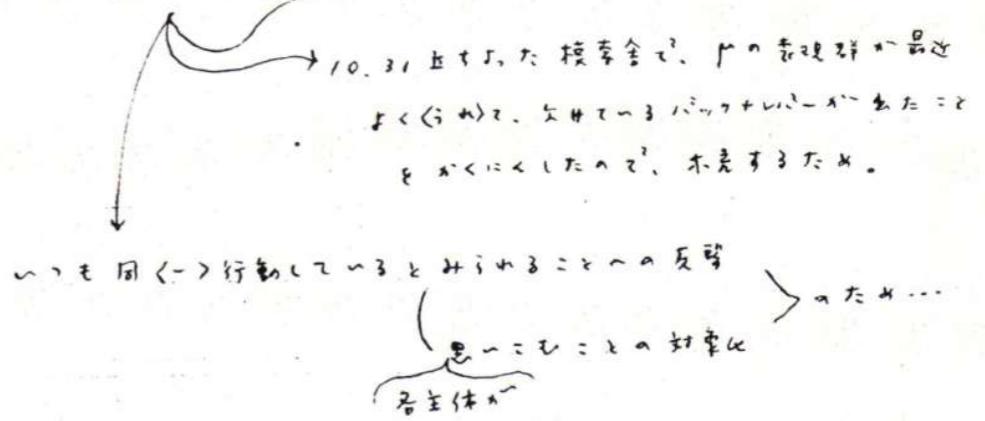 10.31 立ちよった模索舎で、μの表現群が最近
よく〈うれ〉て、欠けているバックナンバーが出たこと
をかくにんしたので、補充するため。
いつも同〈一〉行動しているとみられることへの反撃
のため…
思いこむことの対象化
各主体が